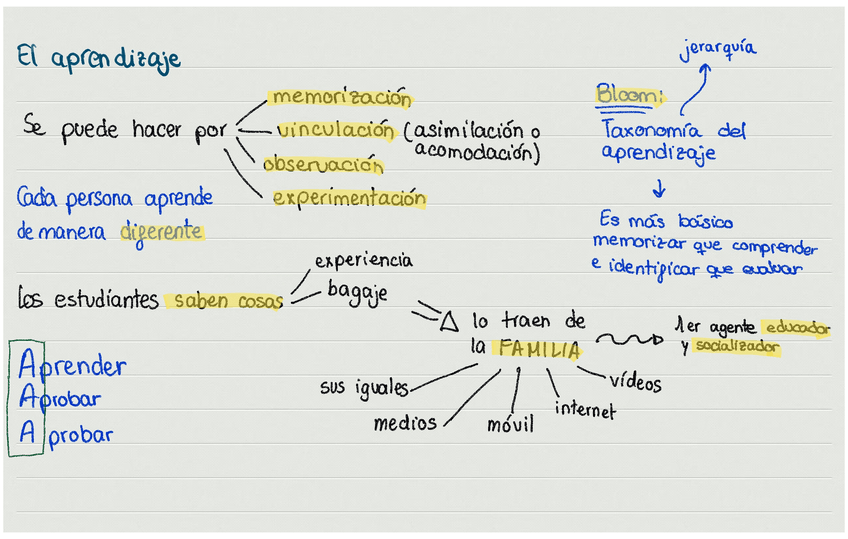 El aprendizaje
Se puede hacer por
memorización
vinculación (asimilación o
acomodación)
observación
experimentación
Cada persona aprende
de manera diferente
jerarquía
Bloom:
Taxonomía del
aprendizaje
Es más básico
memorizar que comprender
e identificar que evaluar
los estudiantes saben cosas
experiencia
bagaje
lo traen de
la FAMILIA
1er agente educador
y socializador
sus iguales
medios
móvil
internet
vídeos
Aprender
Aprobar
A probar